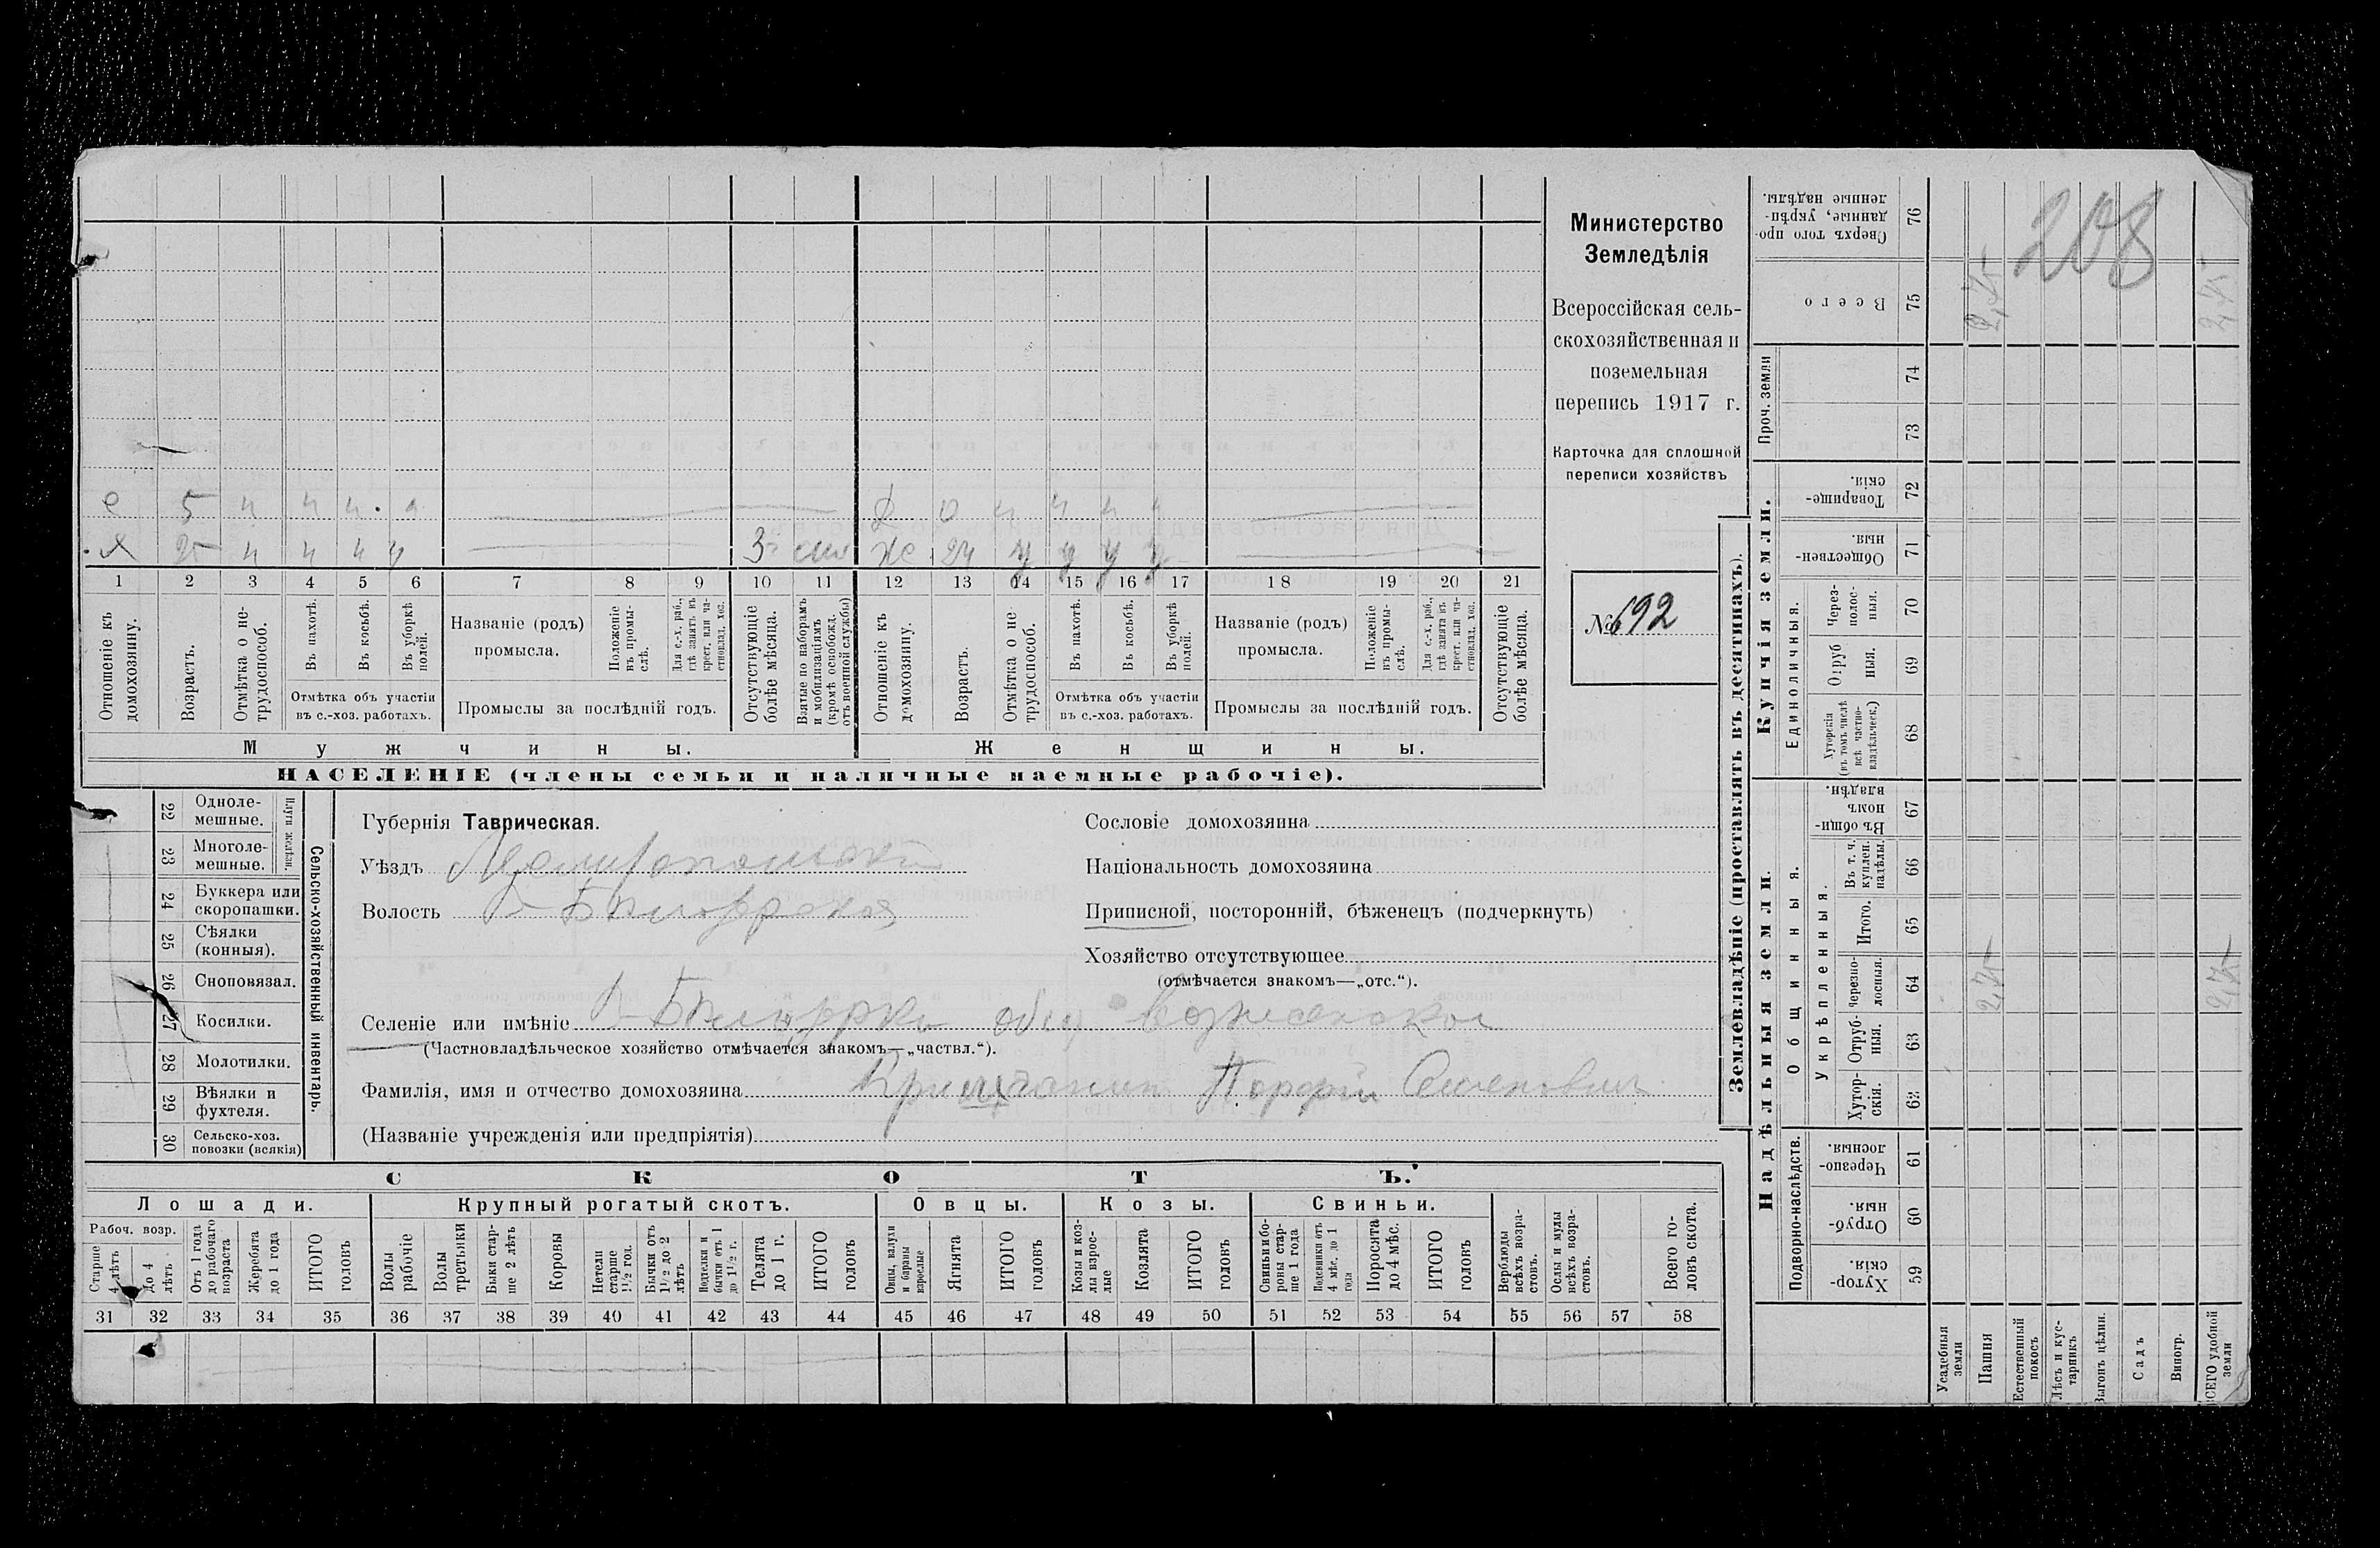 Министерство
Земледѣлія
Всероссійская сель-
скохозяйственная и
поземельная
перепись 1917 г.
Карточка для сплошной
переписи хозяйствъ
№ 692
208
е 5 н н н
Я 25 н н н н 3 же 24 у у у у
1 2 3 4 5 6 7 8 9 10 11 12 13 14 15 16 17 18 19 20 21
Отношеніе къ домохозяину.
Возрастъ.
Отмѣтка о не-трудоспособ.
Въ пахотѣ.
Въ косьбѣ.
Въ уборкѣ полей.
Отмѣтка объ участіи
въ с.-хоз. работахъ.
Названіе (родъ)
промысла.
Положеніе въ промы-слѣ.
Для с.-х. раб., гдѣ занятъ въ крест. или ча-стновлад. хоз.
Промыслы за послѣдній годъ.
Отсутствующіе болѣе мѣсяца.
Взятые по наборамъ и мобилизаціямъ (кромѣ освобожд. отъ военной службы)
Отношеніе къ домохозяину.
Возрастъ.
Отмѣтка о не-трудоспособ.
Въ пахотѣ.
Въ косьбѣ.
Въ уборкѣ полей.
Отмѣтка объ участіи
въ с.-хоз. работахъ.
Названіе (родъ)
промысла.
Положеніе въ промы-слѣ.
Для с.-х. раб., гдѣ занята въ крест. или ча-стновлад. хоз.
Промыслы за послѣдній годъ.
Отсутствующіе болѣе мѣсяца.
Мужчины. Женщины.
НАСЕЛЕНІЕ (члены семьи и наличные наемные рабочіе).
Сельско-хозяйственный инвентарь.
Плуги желѣзн.
22 Одноле-мешные.
23 Многоле-мешные.
24 Буккера или скоропашки.
25 Сѣялки (конныя).
26 Сноповязал.
27 Косилки.
28 Молотилки.
29 Вѣялки и фухтеля.
30 Сельско-хоз. повозки (всякія)
Губернія Таврическая.
Уѣздъ Мелитопольскій
Волость
Сословіе домохозяина
Національность домохозяина
Приписной, посторонній, бѣженецъ (подчеркнуть)
Хозяйство отсутствующее
(отмѣчается знакомъ—„отс.“).
Селеніе или имѣніе
(Частновладѣльческое хозяйство отмѣчается знакомъ—„частвл.“).
Фамилія, имя и отчество домохозяина Семеновичъ
(Названіе учрежденія или предпріятія)
СКОТЪ.
Лошади. Крупный рогатый скотъ. Овцы. Козы. Свиньи.
Рабоч. возр.
Старше 4 лѣтъ
До 4 лѣтъ
Отъ 1 года до рабочаго возраста
Жеребята до 1 года
ИТОГО головъ
Волы рабочіе
Волы третьяки
Быки стар-ше 2 лѣтъ
Коровы
Нетели старше 1 1/2 год.
Бычки отъ 1 1/2 до 2 лѣтъ
Подтелки и бычки отъ 1 до 1 1/2 г.
Телята до 1 г.
ИТОГО головъ
Овцы, валухи и бараны взрослые
Ягнята
ИТОГО головъ
Козы и коз-лы взрос-лые
Козлята
ИТОГО головъ
Свиньи и бо-роны стар-ше 1 года
Подсвинки отъ 4 мѣс. до 1 года
Поросята до 4 мѣс.
ИТОГО головъ
Верблюды всѣхъ возра-стовъ.
Ослы и мулы всѣхъ возра-стовъ.
Всего го-ловъ скота.
31 32 33 34 35 36 37 38 39 40 41 42 43 44 45 46 47 48 49 50 51 52 53 54 55 56 57 58
Землевладѣніе (проставлять въ десятинахъ).
Купчія земли.
Надѣльныя земли.
Проч. земли
Сверхъ того про-данные, укрѣп-ленные надѣлы. 76
Всего 75
74
73
Товарище-скія. 72
Обществен-ныя. 71
Единоличныя.
Через-полос-ныя. 70
Отруб ныя. 69
Хуторскія (въ томъ числѣ всѣ частно-владѣльческ.) 68
Общинныя.
Въ общи-номъ владѣн. 67
Укрѣпленныя.
Въ т. ч. куплен. надѣлы. 66
Итого. 65
Черезпо-лосныя. 64
Отруб-ныя. 63
Хутор-скія. 62
Подворно-наслѣдств.
Черезпо-лосныя 61
Отруб-ныя. 60
Хутор-скія. 59
Усадебныя земли
Пашня
Естественный покосъ
Лѣсъ и кус-тарникъ
Выгонъ цѣлин.
Садъ
Виногр.
ВСЕГО удобной земли